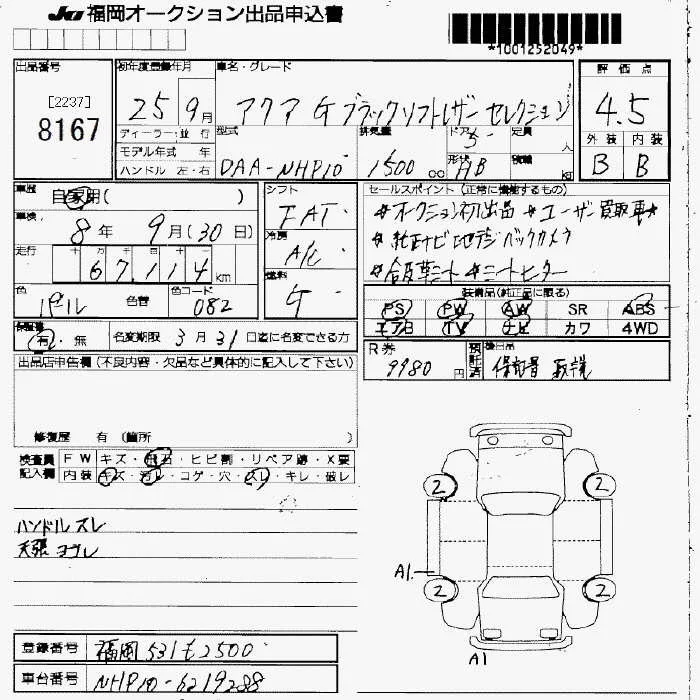 JU 福岡オークション出品申込書
*1001252049*
出品番号 初年度登録年月 車名・グレード 評価点
[2237]
8167 25 9月 アクア G ブラックソフトレザー セレクション 4.5
ディーラー・並行 型式 排気量 ドア 定員 外装 内装
モデル年式 年 5 人
ハンドル 左・右 DAA-NHP10 1500cc 形状 HB 積載 kg B B
車歴 自家用( ) シフト セールスポイント(正常に機能するもの)
車検 8年 9月(30日) FAT #オークション初出品 #ユーザー買取車★
走行 冷房 #純正ナビ地デジバックカメラ
67,114km A/C #合皮革シート #シートヒーター
十 万 千 百 十 一
色 色替 色コード 燃料 装備品(純正品に限る)
パール 082 G PS PW AW SR ABS
エアB TV ナビ カワ 4WD
保証書 有・無 名変期限 3月31日迄に名変できる方 R券 預託済 後日品
9980円 保証書 取説
出品店申告欄(不良内容・欠品など具体的に記入して下さい)
修復歴 有(箇所 )
検査員 FW キズ・飛石・ヒビ割・リペア跡・X要
記入欄 内装 キズ・汚レ・コゲ・穴・スレ・キレ・破レ
2 2
ハンドルスレ
天張ヨゴレ
A1
2 2
登録番号 福岡531も2500
A1
車台番号 NHP10-6219288